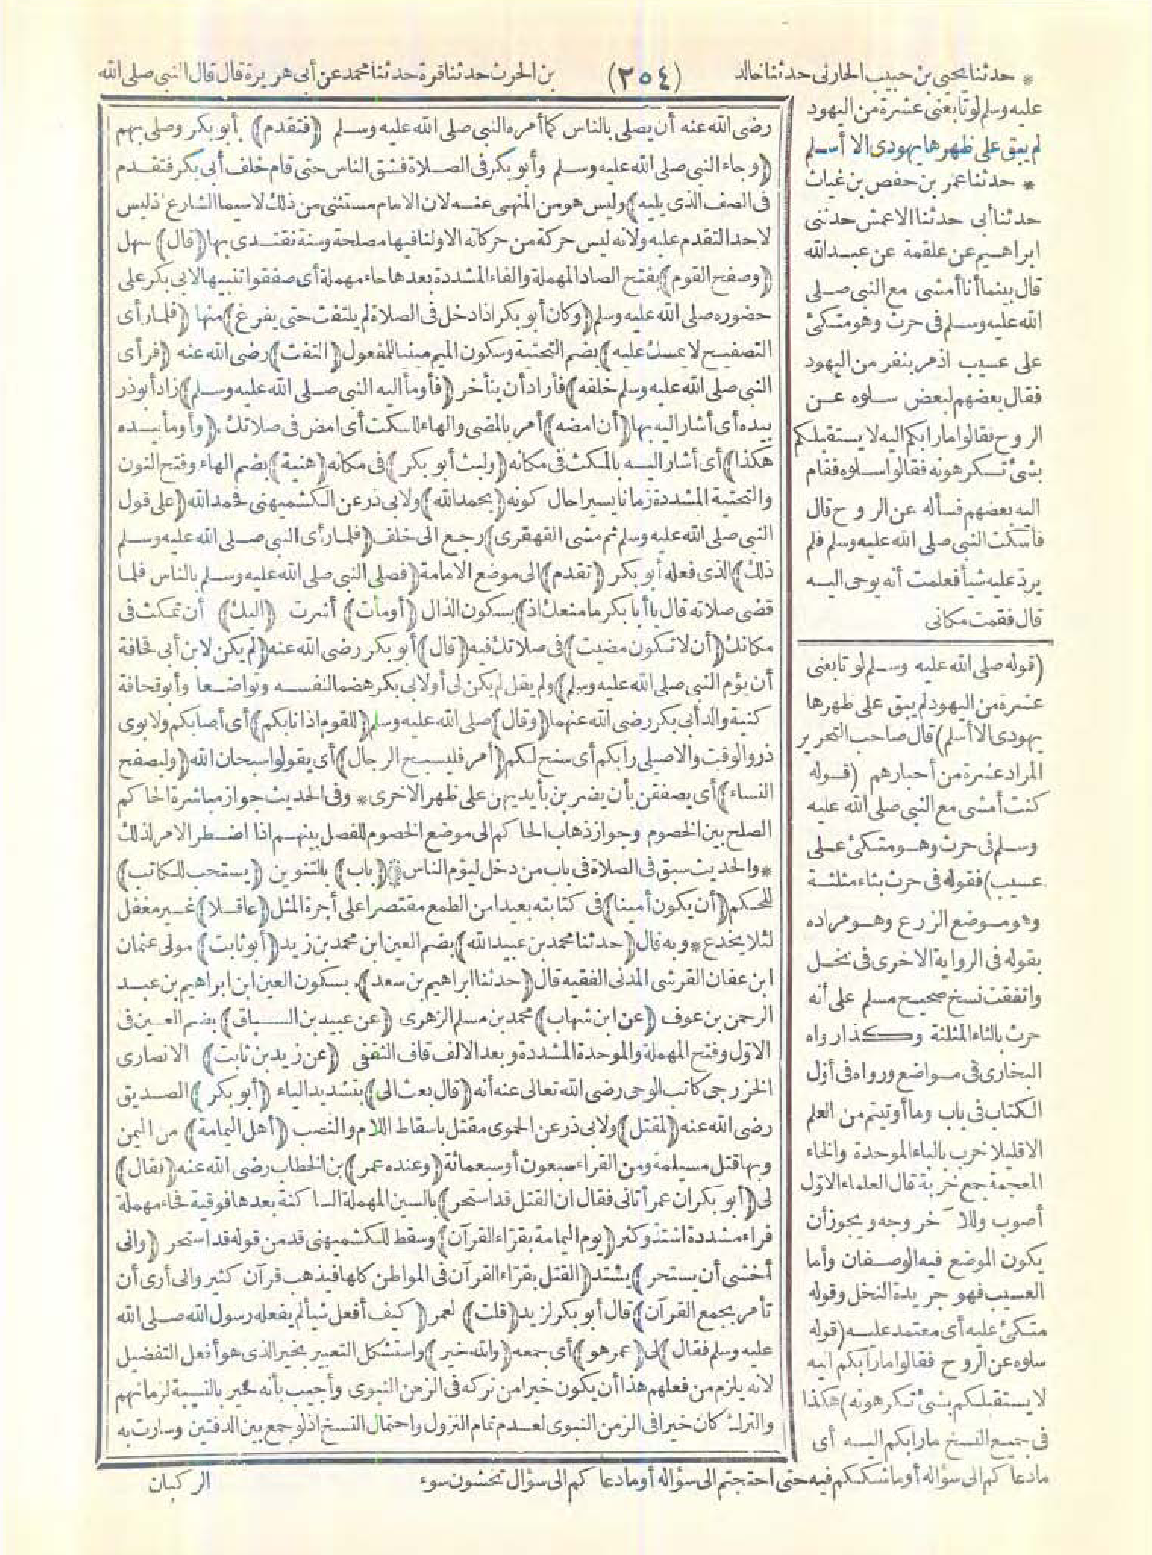 * حدثنا يحيى بن حبيب الحارثى حدثنا خالد (٢٥٤) بن الحرث حدثنا قرة حدثنا محمد عن أبى هريرة قال قال النبى صلى الله
عليه وسلم لو تابعنى عشرة من اليهود
لم يبق على ظهرها يهودى الا أسلم
* حدثنا عمر بن حفص بن غياث
حدثنا أبى حدثنا الاعمش حدثنى
ابراهيم عن علقمة عن عبد الله
قال بينما أنا أمشى مع النبى صلى
الله عليه وسلم فى حرث وهو متكئ
على عسيب اذ مر بنفر من اليهود
فقال بعضهم لبعض سلوه عن
الروح فقالوا ما رابكم اليه لا يستقبلكم
بشئ تكرهونه فقالوا سلوه فقام
اليه بعضهم فسأله عن الروح قال
فأسكت النبى صلى الله عليه وسلم فلم
يرد عليه شيأ فعلمت أنه يوحى اليه
قال فقمت مكانى
(قوله صلى الله عليه وسلم لو تابعنى
عشرة من اليهود لم يبق على ظهرها
يهودى الا أسلم) قال صاحب التحرير
المراد عشرة من أحبارهم (قوله
كنت أمشى مع النبى صلى الله عليه
وسلم فى حرث وهو متكئ على
عسيب) فقوله فى حرث بثاء مثلثة
وهو موضع الزرع وهو مراده
بقوله فى الرواية الاخرى فى نخل
واتفقت نسخ صحيح مسلم على أنه
حرث بالثاء المثلثة وكذا رواه
البخارى فى مواضع ورواه فى أول
الكتاب فى باب وما أوتيتم من العلم
الا قليلا خرب بالباء الموحدة والخاء
المعجمة جمع خربة قال العلماء الاول
أصوب وللآخر وجه ويجوز أن
يكون الموضع فيه الوصفان وأما
العسيب فهو جريدة النخل وقوله
متكئ عليه أى معتمد عليه (قوله
سلوه عن الروح فقالوا ما رابكم اليه
لا يستقبلكم بشئ تكرهونه) هكذا
فى جميع النسخ ما رابكم اليه أى
ما دعاكم الى سؤاله أو ما شككم فيه حتى احتجتم الى سؤاله أو ما دعاكم الى سؤال تخشون سوء
رضى الله عنه أن يصلى بالناس كما أمره النبى صلى الله عليه وسلم (فتقدم) أبو بكر وصلى بهم
(وجاء النبى صلى الله عليه وسلم وأبو بكر فى الصلاة فشق الناس حتى قام خلف أبى بكر فتقدم
فى الصف الذى يليه) وليس هو من المنهى عنه لان الامام مستثنى من ذلك لا سيما الشارع اذ ليس
لاحد التقدم عليه ولانه ليس حركة من حركاته الا ولنا فيها مصلحة وسنة نقتدى بها (قال) سهل
(وصفح القوم) بفتح الصاد المهملة والفاء المشددة بعدها حاء مهملة أى صفقوا تنبيها لابى بكر على
حضوره صلى الله عليه وسلم (وكان أبو بكر اذا دخل فى الصلاة لم يلتفت حتى يفرغ) منها (فلما رأى
التصفيح لا يمسك عليه) بضم التحتية وسكون الميم مبنيا للمفعول (التفت) رضى الله عنه (فرأى
النبى صلى الله عليه وسلم خلفه) فأراد أن يتأخر (فأومأ اليه النبى صلى الله عليه وسلم) زاد أبو ذر
بيده أى أشار اليه بها (أن امضه) أمر بالمضى والهاء للسكت أى امض فى صلاتك (وأومأ بيده
هكذا) أى أشار اليه بالمكث فى مكانه (ولبث أبو بكر) فى مكانه (هنية) بضم الهاء وفتح النون
والتحتية المشددة زمانا يسيرا حال كونه (يحمد الله) ولابى ذر عن الكشميهنى فحمد الله (على قول
النبى صلى الله عليه وسلم ثم مشى القهقرى) رجع الى خلف (فلما رأى النبى صلى الله عليه وسلم
ذلك) الذى فعله أبو بكر (تقدم) الى موضع الامامة (فصلى النبى صلى الله عليه وسلم بالناس فلما
قضى صلاته قال يا أبا بكر ما منعك اذ) بسكون الذال (أومأت) أشرت (اليك) أن تمكث فى
مكانك (أن لا تكون مضيت) فى صلاتك فيه (قال) أبو بكر رضى الله عنه (لم يكن لابن أبى قحافة
أن يؤم النبى صلى الله عليه وسلم) ولم يقل لم يكن لى أو لابى بكر هضما لنفسه وتواضعا وأبو قحافة
كنية والد أبى بكر رضى الله عنهما (وقال) صلى الله عليه وسلم (للقوم اذا نابكم) أى أصابكم ولابوى
ذر والوقت والاصيلى رابكم أى سنح لكم (أمر فليسبح الرجال) أى يقولوا سبحان الله (وليصفح
النساء) أى يصفقن بأن يضربن بأيديهن على ظهر الاخرى * وفى الحديث جواز مباشرة الحاكم
الصلح بين الخصوم وجواز ذهاب الحاكم الى موضع الخصوم للفصل بينهم اذا اضطر الامر لذلك
* والحديث سبق فى الصلاة فى باب من دخل ليؤم الناس (باب) بالتنوين (يستحب للكاتب)
للحكم (أن يكون أمينا) فى كتابته بعيدا من الطمع مقتصرا على أجرة المثل (عاقلا) غير مغفل
لئلا يخدع * وبه قال (حدثنا محمد بن عبيد الله) بضم العين ابن محمد بن زيد (أبو ثابت) مولى عثمان
ابن عفان القرشى المدنى الفقيه قال (حدثنا ابراهيم بن سعد) بسكون العين ابن ابراهيم بن عبد
الرحمن بن عوف (عن ابن شهاب) محمد بن مسلم الزهرى (عن عبيد بن السباق) بضم العين فى
الاول وفتح المهملة والموحدة المشددة وبعد الالف قاف الثقفى (عن زيد بن ثابت) الانصارى
الخزرجى كاتب الوحى رضى الله تعالى عنه أنه (قال بعث الى) بتشديد الياء (أبو بكر) الصديق
رضى الله عنه (لمقتل) ولابى ذر عن الحموى مقتل باسقاط اللام والنصب (أهل اليمامة) من اليمن
وبها قتل مسيلمة ومن القراء سبعون أو سبعمائة (وعنده عمر) بن الخطاب رضى الله عنه (فقال)
لى (أبو بكر ان عمر أتانى فقال ان القتل قد استحر) بالسين المهملة الساكنة بعدها فوقية فحاء مهملة
فراء مشددة اشتد وكثر (يوم اليمامة بقراء القرآن) وسقط للكشميهنى قد من قوله قد استحر (وانى
أخشى أن يستحر) يشتد (القتل بقراء القرآن فى المواطن كلها فيذهب قرآن كثير وانى أرى أن
تأمر بجمع القرآن) قال أبو بكر لزيد (قلت) لعمر (كيف أفعل شيأ لم يفعله رسول الله صلى الله
عليه وسلم فقال) لى (عمر هو) أى جمعه (والله خير) واستشكل التعبير بخير الذى هو أفعل التفضيل
لانه يلزم من فعلهم هذا أن يكون خيرا من تركه فى الزمن النبوى وأجيب بأنه خير بالنسبة لزمانهم
والترك كان خيرا فى الزمن النبوى لعدم تمام النزول واحتمال النسخ اذ لو جمع بين الدفتين وسارت به
الركبان